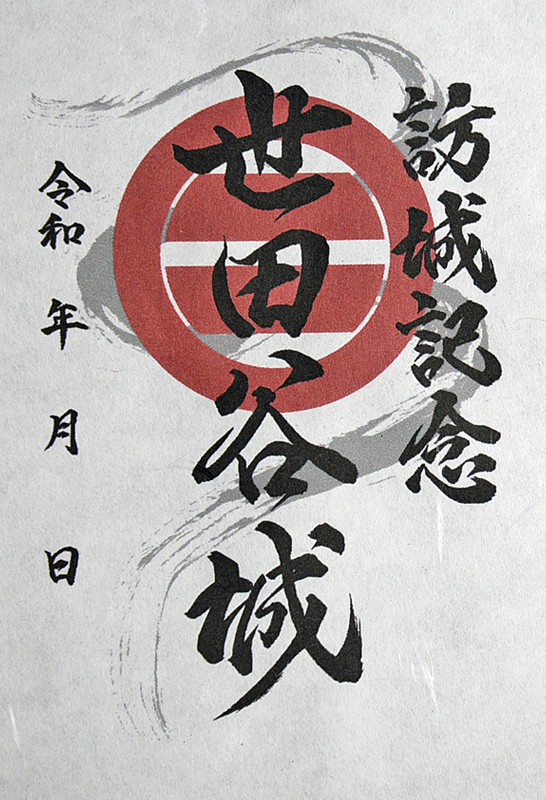 訪城記念
世田谷城
令和 年 月 日